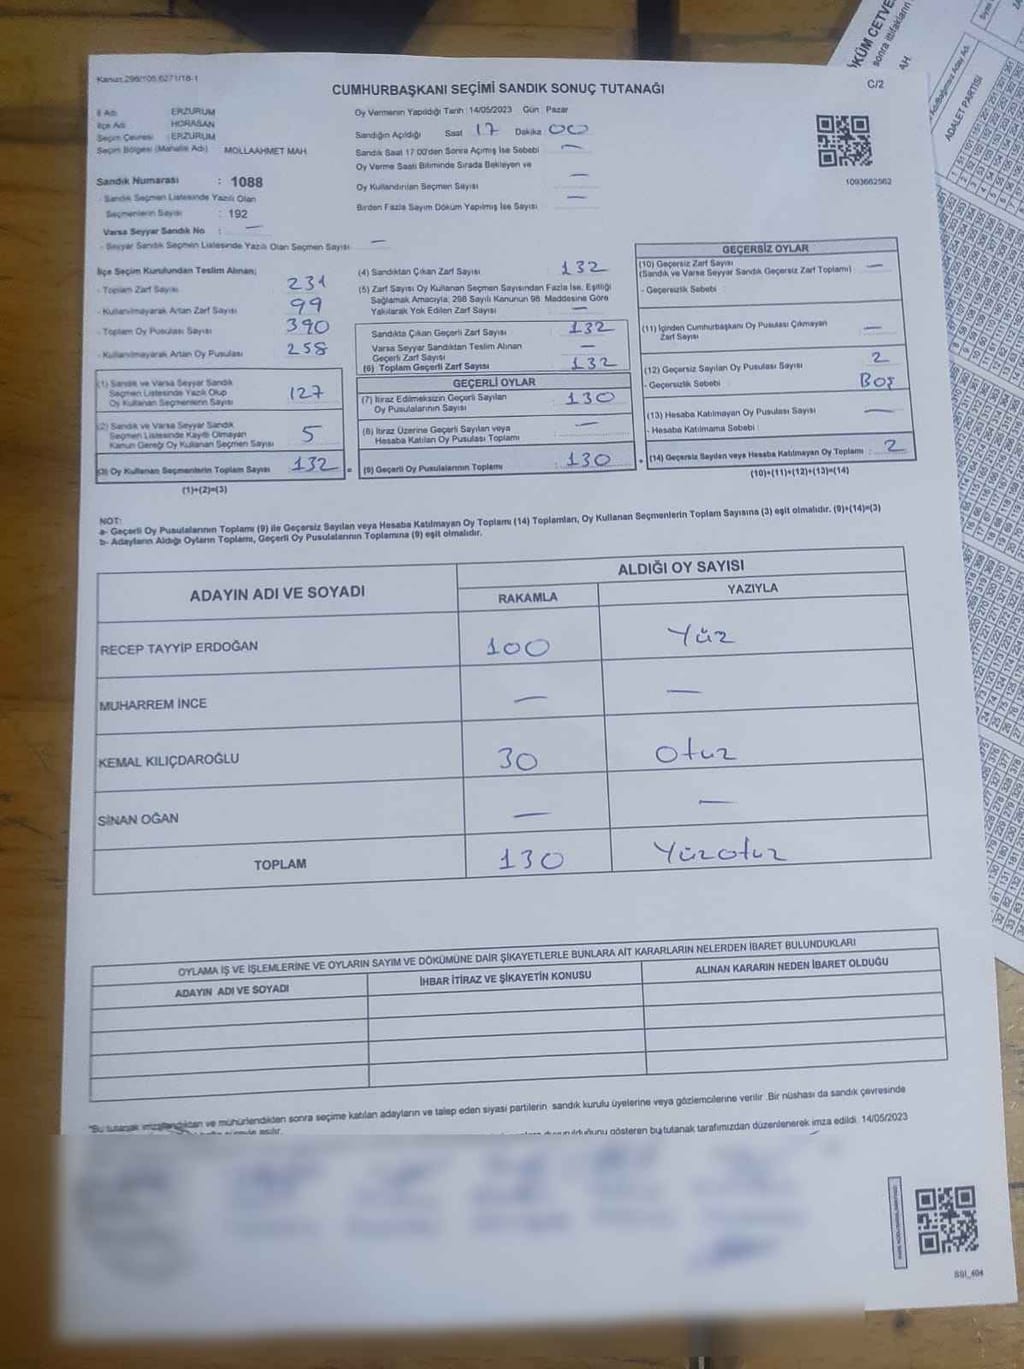 Kanun:298/105,6271/18-1
CUMHURBAŞKANI SEÇİMİ SANDIK SONUÇ TUTANAĞI
C/2
İl Adı ERZURUM
İlçe Adı HORASAN
Seçim Çevresi : ERZURUM
Seçim Bölgesi (Mahalle Adı) MOLLAAHMET MAH.
Sandık Numarası : 1088
- Sandık Seçmen Listesinde Yazılı Olan
Seçmenlerin Sayısı : 192
Varsa Seyyar Sandık No : —
- Seyyar Sandık Seçmen Listesinde Yazılı Olan Seçmen Sayısı —
Oy Vermenin Yapıldığı Tarih : 14/05/2023 Gün : Pazar
Sandığın Açıldığı Saat 17 Dakika 00
Sandık Saat 17:00'den Sonra Açılmış İse Sebebi —
Oy Verme Saati Bitiminde Sırada Bekleyen ve
Oy Kullandırılan Seçmen Sayısı —
Birden Fazla Sayım Döküm Yapılmış İse Sayısı —
1093662562
İlçe Seçim Kurulundan Teslim Alınan;
- Toplam Zarf Sayısı 231
- Kullanılmayarak Artan Zarf Sayısı 99
- Toplam Oy Pusulası Sayısı 390
- Kullanılmayarak Artan Oy Pusulası 258
(1) Sandık ve Varsa Seyyar Sandık
Seçmen Listesinde Yazılı Olup
Oy Kullanan Seçmenlerin Sayısı 127
(2) Sandık ve Varsa Seyyar Sandık
Seçmen Listesinde Kayıtlı Olmayan
Kanun Gereği Oy Kullanan Seçmen Sayısı 5
(3) Oy Kullanan Seçmenlerin Toplam Sayısı 132 =
(1)+(2)=(3)
(4) Sandıktan Çıkan Zarf Sayısı 132
(5) Zarf Sayısı Oy Kullanan Seçmen Sayısından Fazla İse, Eşitliği
Sağlamak Amacıyla, 298 Sayılı Kanunun 98. Maddesine Göre
Yakılarak Yok Edilen Zarf Sayısı —
Sandıkta Çıkan Geçerli Zarf Sayısı 132
Varsa Seyyar Sandıktan Teslim Alınan
Geçerli Zarf Sayısı —
(6) Toplam Geçerli Zarf Sayısı 132
GEÇERLİ OYLAR
(7) İtiraz Edilmeksizin Geçerli Sayılan
Oy Pusulalarının Sayısı 130
(8) İtiraz Üzerine Geçerli Sayılan veya
Hesaba Katılan Oy Pusulası Toplamı —
(9) Geçerli Oy Pusulalarının Toplamı 130 +
GEÇERSİZ OYLAR
(10) Geçersiz Zarf Sayısı —
(Sandık ve Varsa Seyyar Sandık Geçersiz Zarf Toplamı)
- Geçersizlik Sebebi :
(11) İçinden Cumhurbaşkanı Oy Pusulası Çıkmayan
Zarf Sayısı —
(12) Geçersiz Sayılan Oy Pusulası Sayısı 2
- Geçersizlik Sebebi : Boş
(13) Hesaba Katılmayan Oy Pusulası Sayısı —
- Hesaba Katılmama Sebebi :
(14) Geçersiz Sayılan veya Hesaba Katılmayan Oy Toplamı : 2
(10)+(11)+(12)+(13)=(14)
NOT:
a- Geçerli Oy Pusulalarının Toplamı (9) ile Geçersiz Sayılan veya Hesaba Katılmayan Oy Toplamı (14) Toplamları, Oy Kullanan Seçmenlerin Toplam Sayısına (3) eşit olmalıdır. (9)+(14)=(3)
b- Adayların Aldığı Oyların Toplamı, Geçerli Oy Pusulalarının Toplamına (9) eşit olmalıdır.
ADAYIN ADI VE SOYADI ALDIĞI OY SAYISI
RAKAMLA YAZIYLA
RECEP TAYYİP ERDOĞAN 100 Yüz
MUHARREM İNCE — —
KEMAL KILIÇDAROĞLU 30 Otuz
SİNAN OĞAN — —
TOPLAM 130 Yüzotuz
OYLAMA İŞ VE İŞLEMLERİNE VE OYLARIN SAYIM VE DÖKÜMÜNE DAİR ŞİKAYETLERLE BUNLARA AİT KARARLARIN NELERDEN İBARET BULUNDUKLARI
ADAYIN ADI VE SOYADI İHBAR İTİRAZ VE ŞİKAYETİN KONUSU ALINAN KARARIN NEDEN İBARET OLDUĞU
"Bu tutanak imzalandıktan ve mühürlendikten sonra seçime katılan adayların ve talep eden siyasi partilerin sandık kurulu üyelerine veya gözlemcilerine verilir. Bir nüshası da sandık çevresinde
gösteren bu tutanak tarafımızdan düzenlenerek imza edildi. 14/05/2023
SSI_404
DÖKÜM CETVE
sonra ittifakların
AH.
ADALET PARTİSİ